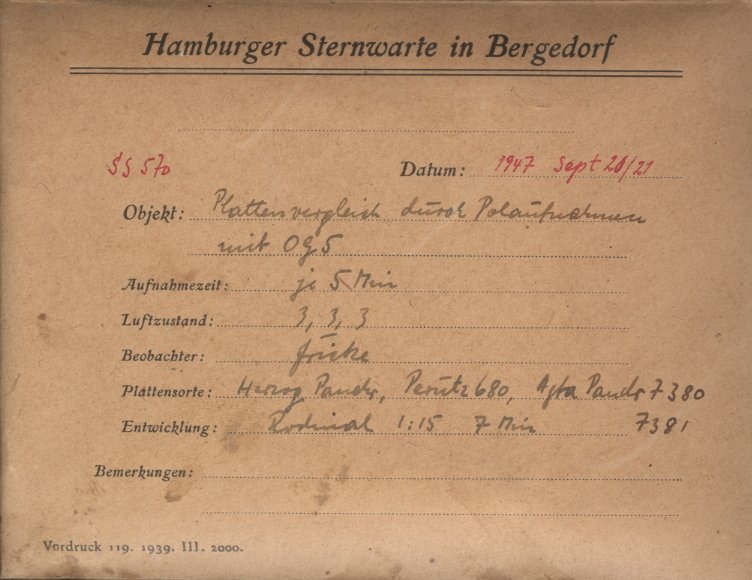 Hamburger Sternwarte in Bergedorf
SS 570 Datum: 1947 Sept 20/21
Objekt: Plattenvergleich durch Polaufnahmen
mit OG5
Aufnahmezeit: je 5 Min
Luftzustand: 3, 3, 3
Beobachter: Fricke
Plattensorte: Herzog Panchr, Perutz 680, Agfa Panchr 7380
Entwicklung: Rodinal 1:15 7 Min 7381
Bemerkungen:
Vordruck 119. 1939. III. 2000.